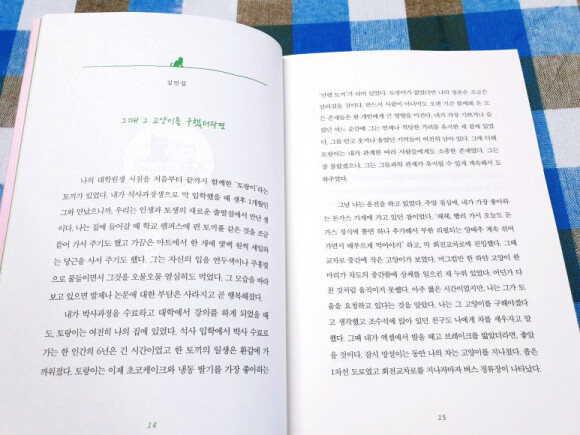 김민섭
그때 그 고양이를 구했더라면
나의 대학원생 시절을 처음부터 끝까지 함께한 ‘토랑이’라는
토끼가 있었다. 내가 석사과정으로 막 입학했을 때 생후 1개월인
그와 만났으니까, 우리는 인생과 토생의 새로운 출발점에서 만난 셈
이다. 나는 집에 들어갈 때 학교 캠퍼스에 핀 토끼풀 같은 것을 조금
뜯어 가서 주기도 했고 가끔은 마트에서 한 개에 몇백 원씩 세일하
는 당근을 사서 주기도 했다. 그는 자신의 입을 연두색이나 주홍빛
으로 물들이면서 그것을 오물오물 열심히도 먹었다. 그 모습을 바라
보고 있으면 발제나 논문에 대한 부담은 사라지고 곧 행복해졌다.
내가 박사과정을 수료하고 대학에서 강의를 하게 되었을 때
도, 토랑이는 여전히 나의 집에 있었다. 석사 입학에서 박사 수료로
가는 한 인간의 6년은 긴 시간이었고 한 토끼의 일생은 환갑에 가
까워졌다. 토랑이는 이제 초코케이크와 냉동 딸기를 가장 좋아하는
14
‘만렙 토끼’가 되어 있었다. 토랑이가 없었다면 나의 청춘은 조금은
달라졌을 것이다. 반드시 사람이 아니더라도 오랜 기간 함께해 온 모
든 존재들은 한 개인에게 큰 영향을 미친다. 내가 가장 기쁘거나 슬
펐던 어느 순간에, 그는 언제나 적당한 거리를 유지한 채 곁에 있었
다. 그를 안고 웃거나 울었던 기억들이 여전히 남아 있다. 그에 더해
토랑이는 내가 관계한 여러 사람들에게도 소중한 존재였다. 그는
잘 몰랐겠으나, 그는 그들과의 관계가 유지될 수 있게 계속해서 도
와주었다.
그날 나는 운전을 하고 있었다. 주말 점심에, 내가 가장 좋아하
는 돈가스 가게에 가고 있던 참이었다. ‘헤헤, 빨리 가서 오늘도 돈가
스 정식에 쫄면 하나 추가해서 무한 리필되는 양배추 계속 섞어
가면서 배부르게 먹어야지’ 하고, 막 회전교차로에 진입했다. 그때 교
차로 중간에 작은 고양이가 보였다. 머그컵만 한 하얀 고양이 한
마리가 차도의 중간쯤에 상체를 일으킨 채 누워 있었다. 어딘가 다
친 것처럼 움직이지 못했다. 아주 짧은 시간이었지만, 나는 그가 도
움을 요청하고 있다는 것을 알았다. 나는 그 고양이를 구해야겠다
고 생각했고 조수석에 앉아 있던 친구도 나에게 차를 세우자고 말
했다. 그때 내가 액셀에서 발을 떼고 브레이크를 밟았더라면, 좋았
을 것이다. 잠시 망설이는 동안 나의 차는 고양이를 지나쳤다. 좁은
1차선 도로였고 회전교차로를 지나자마자 버스 정류장이 나타났다.
15